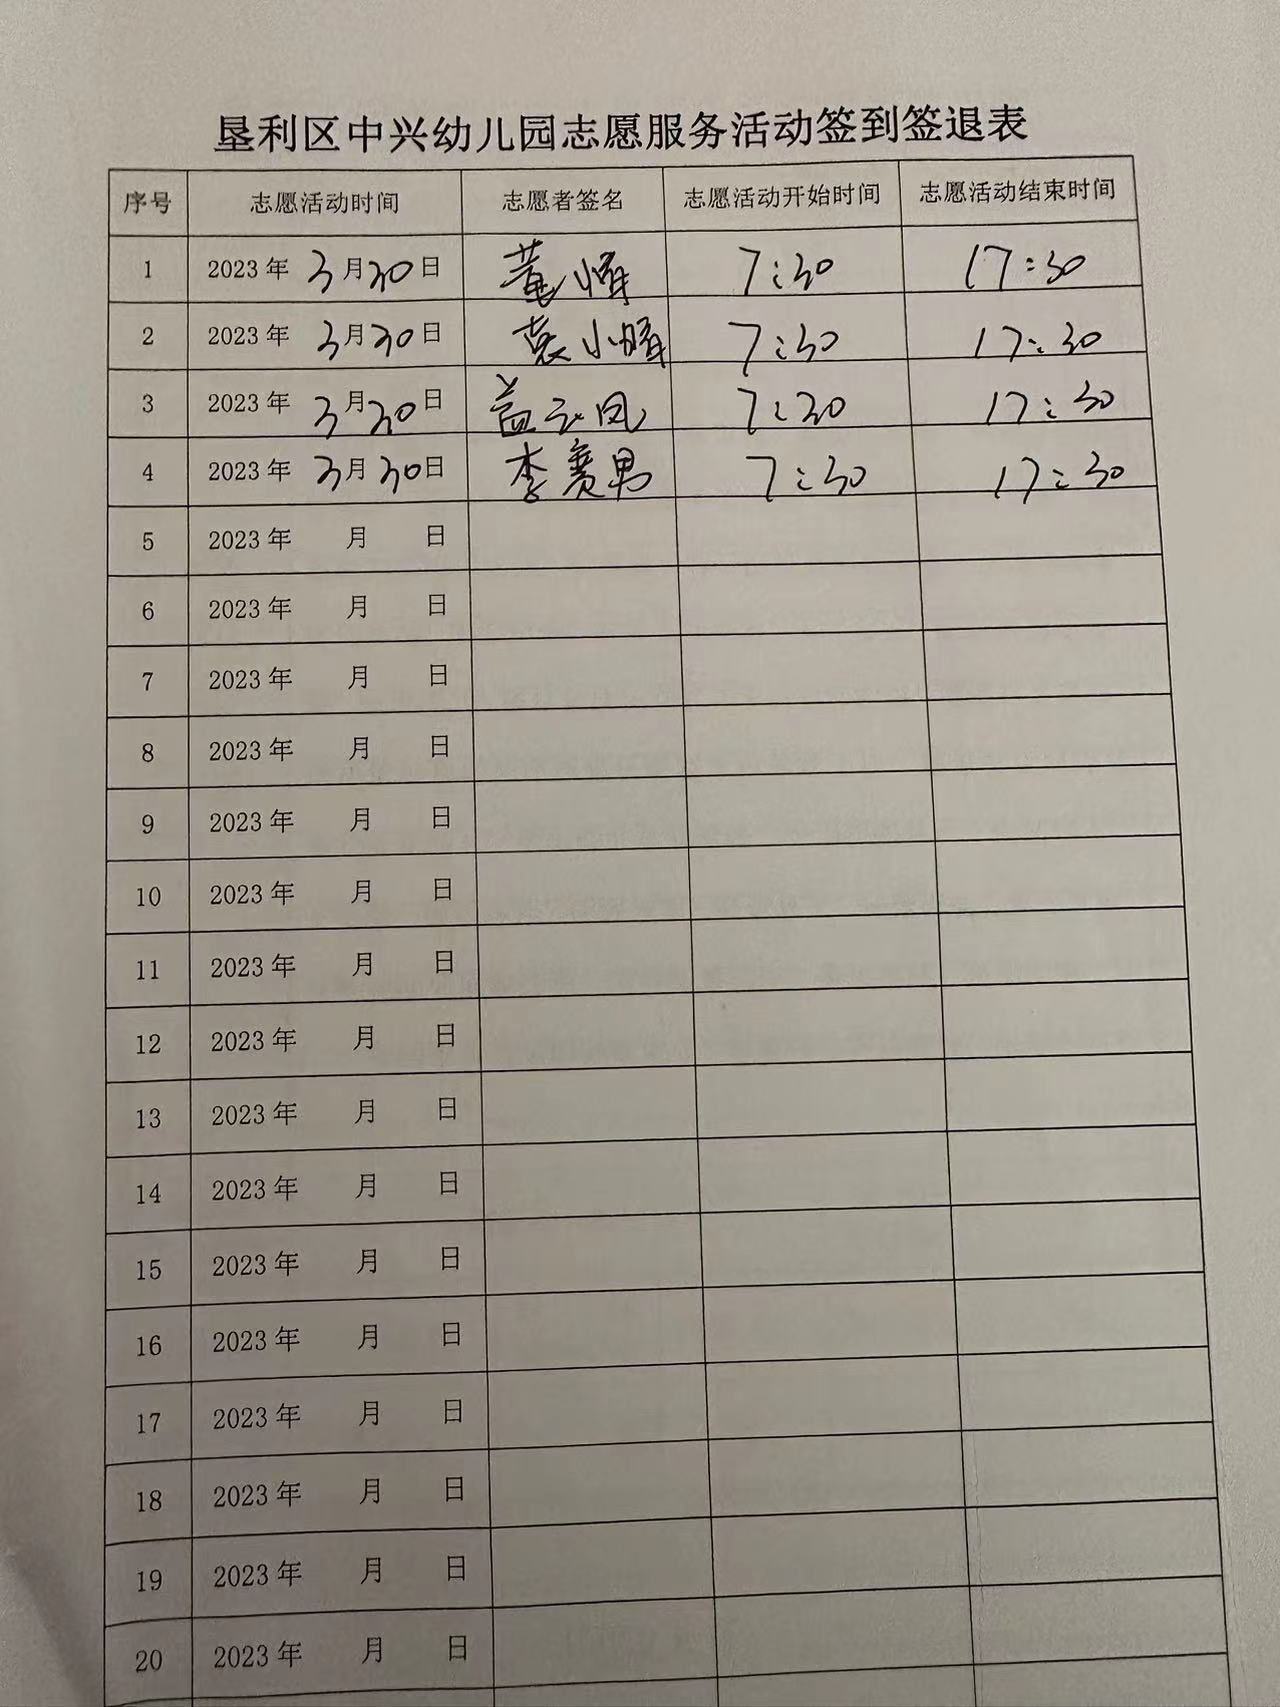 垦利区中兴幼儿园志愿服务活动签到签退表
序号 志愿活动时间 志愿者签名 志愿活动开始时间 志愿活动结束时间
1 2023年 3月30日 7:30 17:30
2 2023年 3月30日 袁小晴 7:30 17:30
3 2023年 3月30日 盖云凤 7:30 17:30
4 2023年 3月30日 李赛男 7:30 17:30
5 2023年 月 日
6 2023年 月 日
7 2023年 月 日
8 2023年 月 日
9 2023年 月 日
10 2023年 月 日
11 2023年 月 日
12 2023年 月 日
13 2023年 月 日
14 2023年 月 日
15 2023年 月 日
16 2023年 月 日
17 2023年 月 日
18 2023年 月 日
19 2023年 月 日
20 2023年 月 日